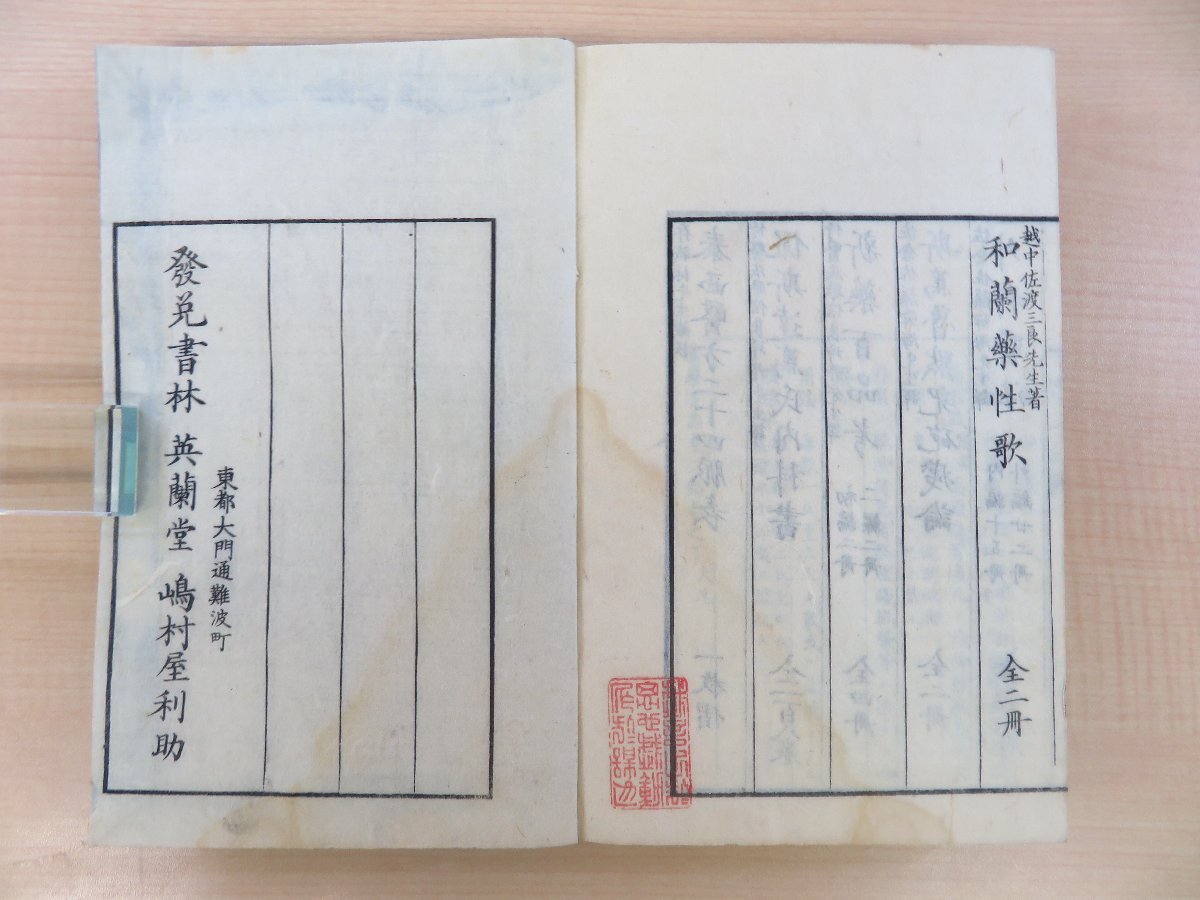 越中佐渡三良先生著
和蘭藥性歌 全二冊
東都大門通難波町
發兌書林 英蘭堂 嶋村屋利助